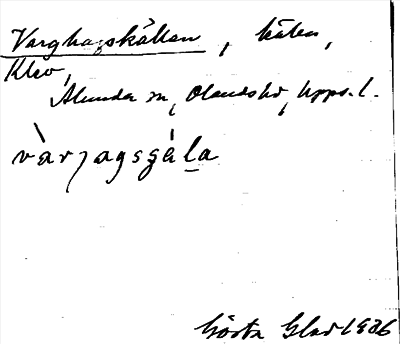 Varghagskällan, källa,
Klev,
Alunda sn, Olands hd, Upps. l.
vàrjagsʂä̀la
Gösta Glad 1936